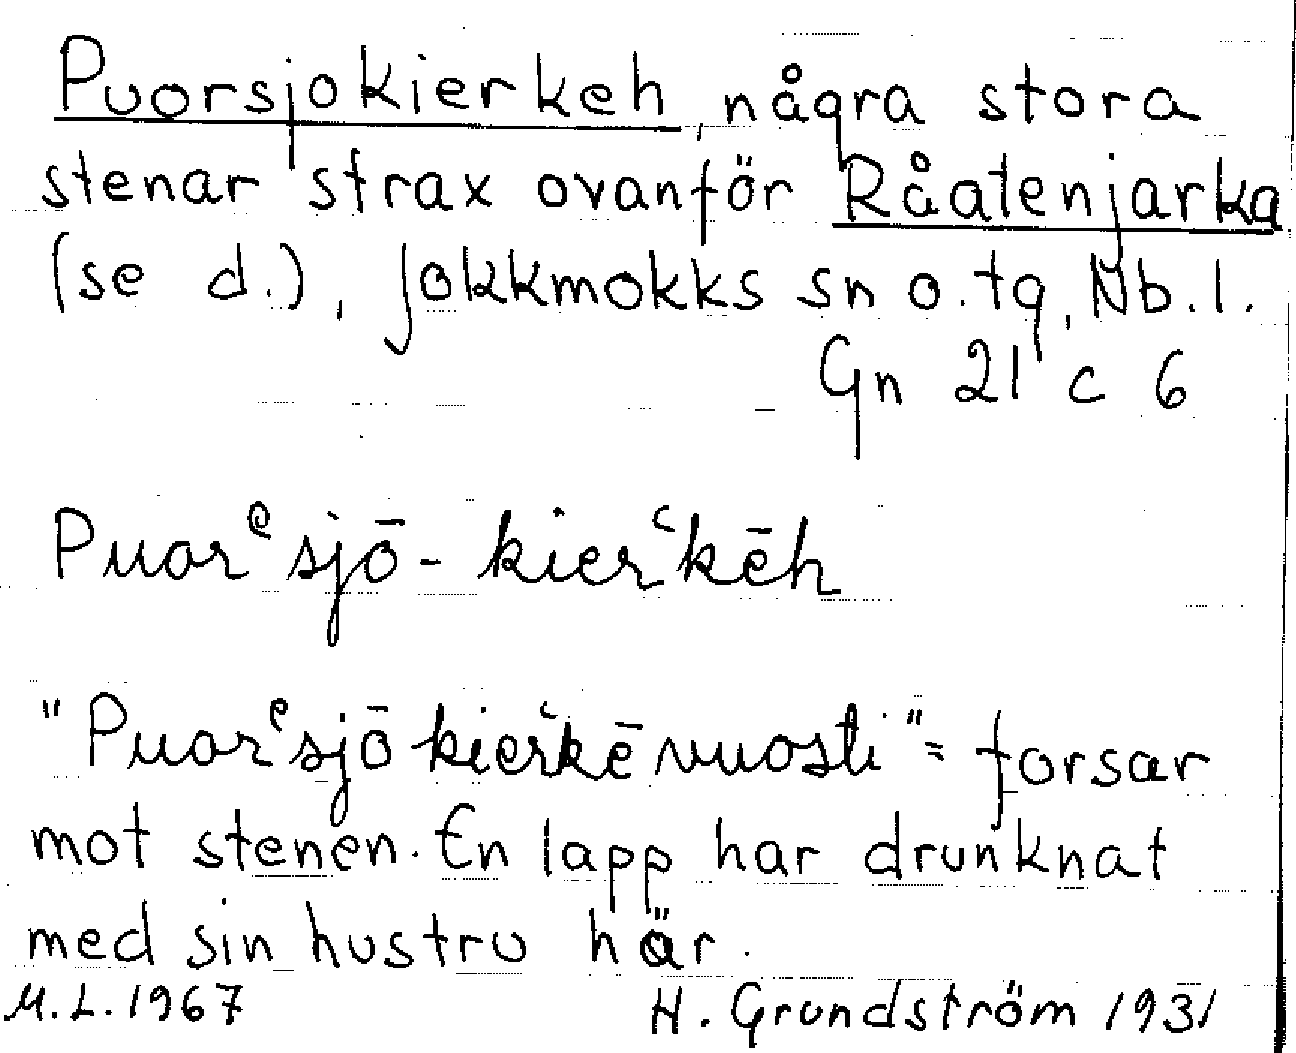 Puorsjokierkeh, några stora
stenar strax ovanför Råatenjarka
(se d.), Jokkmokks sn o. tg, Nb. l.
Gn 21 c 6
Puorᵉsjō-kierʿkēh
"Puorᵉsjōkierʿkē vuosti" = forsar
mot stenen. En lapp har drunknat
med sin hustru här.
M.L. 1967 H. Grundström 1931